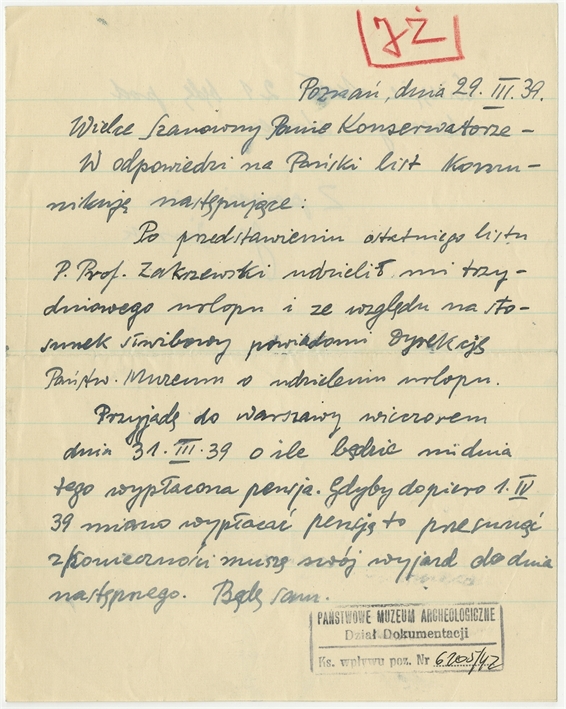 JŻ
Poznań, dnia 29. III. 39.
Wielce Szanowny Panie Konserwatorze –
W odpowiedzi na Pański list Komu–
nikuję następujące:
Po przedstawieniu ostatniego listu
P. Prof. Zakrzewski udzielił mi trzy–
dniowego urlopu i ze względu na sto–
sunek służbowy powiadomi Dyrekcję
Państw. Muzeum o udzieleniu urlopu.
Przyjadę do Warszawy wieczorem
dnia 31. III. 39 o ile będzie mi dnia
tego wypłacona pensja. Gdyby dopiero 1. IV
39 miano wypłacać pensję to przesunąć
z konieczności muszę swój wyjazd do dnia
następnego. Będę sam.
PAŃSTWOWE MUZEUM ARCHEOLOGICZNE
Dział Dokumentacji
Ks. wpływu poz. Nr